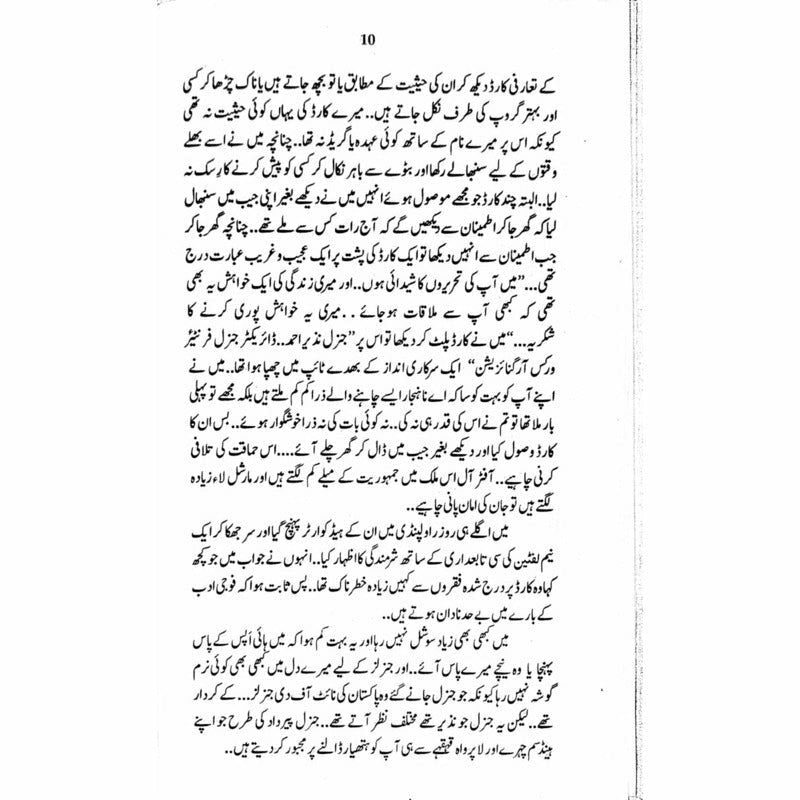 10
کے تعارفی کارڈ دیکھ کر ان کی حیثیت کے مطابق یا تو بچھ جاتے ہیں یا ناک چڑھا کر کسی
اور بہتر گروپ کی طرف نکل جاتے ہیں.. میرے کارڈ کی یہاں کوئی حیثیت نہ تھی
کیونکہ اس پر میرے نام کے ساتھ کوئی عہدہ یا گریڈ نہ تھا.. چنانچہ میں نے اسے بھلے
وقتوں کے لیے سنبھالے رکھا اور بٹوے سے باہر نکال کر کسی کو پیش کرنے کا رِسک نہ
لیا.. البتہ چند کارڈ جو مجھے موصول ہوئے انہیں میں نے دیکھے بغیر اپنی جیب میں سنبھال
لیا کہ گھر جا کر اطمینان سے دیکھیں گے کہ آج رات کس سے ملے تھے.. چنانچہ گھر جا کر
جب اطمینان سے انہیں دیکھا تو ایک کارڈ کی پشت پر ایک عجیب و غریب عبارت درج
تھی...”میں آپ کی تحریروں کا شیدائی ہوں.. اور میری زندگی کی ایک خواہش یہ بھی
تھی کہ کبھی آپ سے ملاقات ہو جائے.. میری یہ خواہش پوری کرنے کا
شکریہ...“ میں نے کارڈ پلٹ کر دیکھا تو اس پر ”جنرل نذیر احمد.. ڈائریکٹر جنرل فرنٹیئر
ورکس آرگنائزیشن“ ایک سرکاری انداز کے بھدے ٹائپ میں چھپا ہوا تھا.. میں نے
اپنے آپ کو بہت کوسا کہ اے ناہنجار ایسے چاہنے والے ذرا کم کم ملتے ہیں بلکہ مجھے تو پہلی
بار ملا تھا تو تم نے اس کی قدر ہی نہ کی.. نہ کوئی بات کی نہ ذرا خوشگوار ہوئے.. بس ان کا
کارڈ وصول کیا اور دیکھے بغیر جیب میں ڈال کر گھر چلے آئے.... اس حماقت کی تلافی
کرنی چاہیے.. آفٹر آل اس ملک میں جمہوریت کے میلے کم لگتے ہیں اور مارشل لاء زیادہ
لگتے ہیں تو جان کی امان پانی چاہیے..
میں اگلے ہی روز راولپنڈی میں ان کے ہیڈ کوارٹر پہنچ گیا اور سر جھکا کر ایک
نیم لفٹین کی سی تابعداری کے ساتھ شرمندگی کا اظہار کیا.. انہوں نے جواب میں جو کچھ
کہا وہ کارڈ پر درج شدہ فقروں سے کہیں زیادہ خطرناک تھا.. پس ثابت ہوا کہ فوجی ادب
کے بارے میں بے حد نادان ہوتے ہیں..
میں کبھی بھی زیاد سوشل نہیں رہا اور یہ بہت کم ہوا کہ میں ہائی اَپس کے پاس
پہنچا یا وہ نیچے میرے پاس آئے.. اور جنرلز کے لیے میرے دل میں کبھی بھی کوئی نرم
گوشہ نہیں رہا کیونکہ جو جنرل جانے گئے وہ پاکستان کی نائٹ آف دی جنرلز... کے کردار
تھے.. لیکن یہ جنرل جو نذیر تھے مختلف نظر آتے تھے.. جنرل پیرداد کی طرح جو اپنے
ہینڈسم چہرے اور لاپرواہ قہقہے سے ہی آپ کو ہتھیار ڈالنے پر مجبور کر دیتے ہیں..